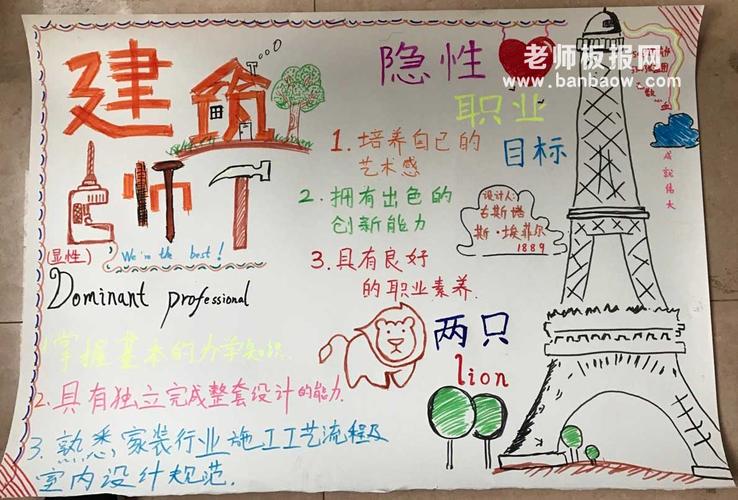 建筑师
(显性)
We're the best!
Dominant professional
1.掌握基本的力学知识.
2.具有独立完成整套设计的能力.
3.熟悉家装行业施工工艺流程及
室内设计规范.
隐性
职业
目标
1.培养自己的
艺术感
2.拥有出色的
创新能力
3.具有良好
的职业素养.
设计人:
古斯塔
斯·埃菲尔
1889
两只
lion
成就伟大
老师板报网
www.banbaow.com